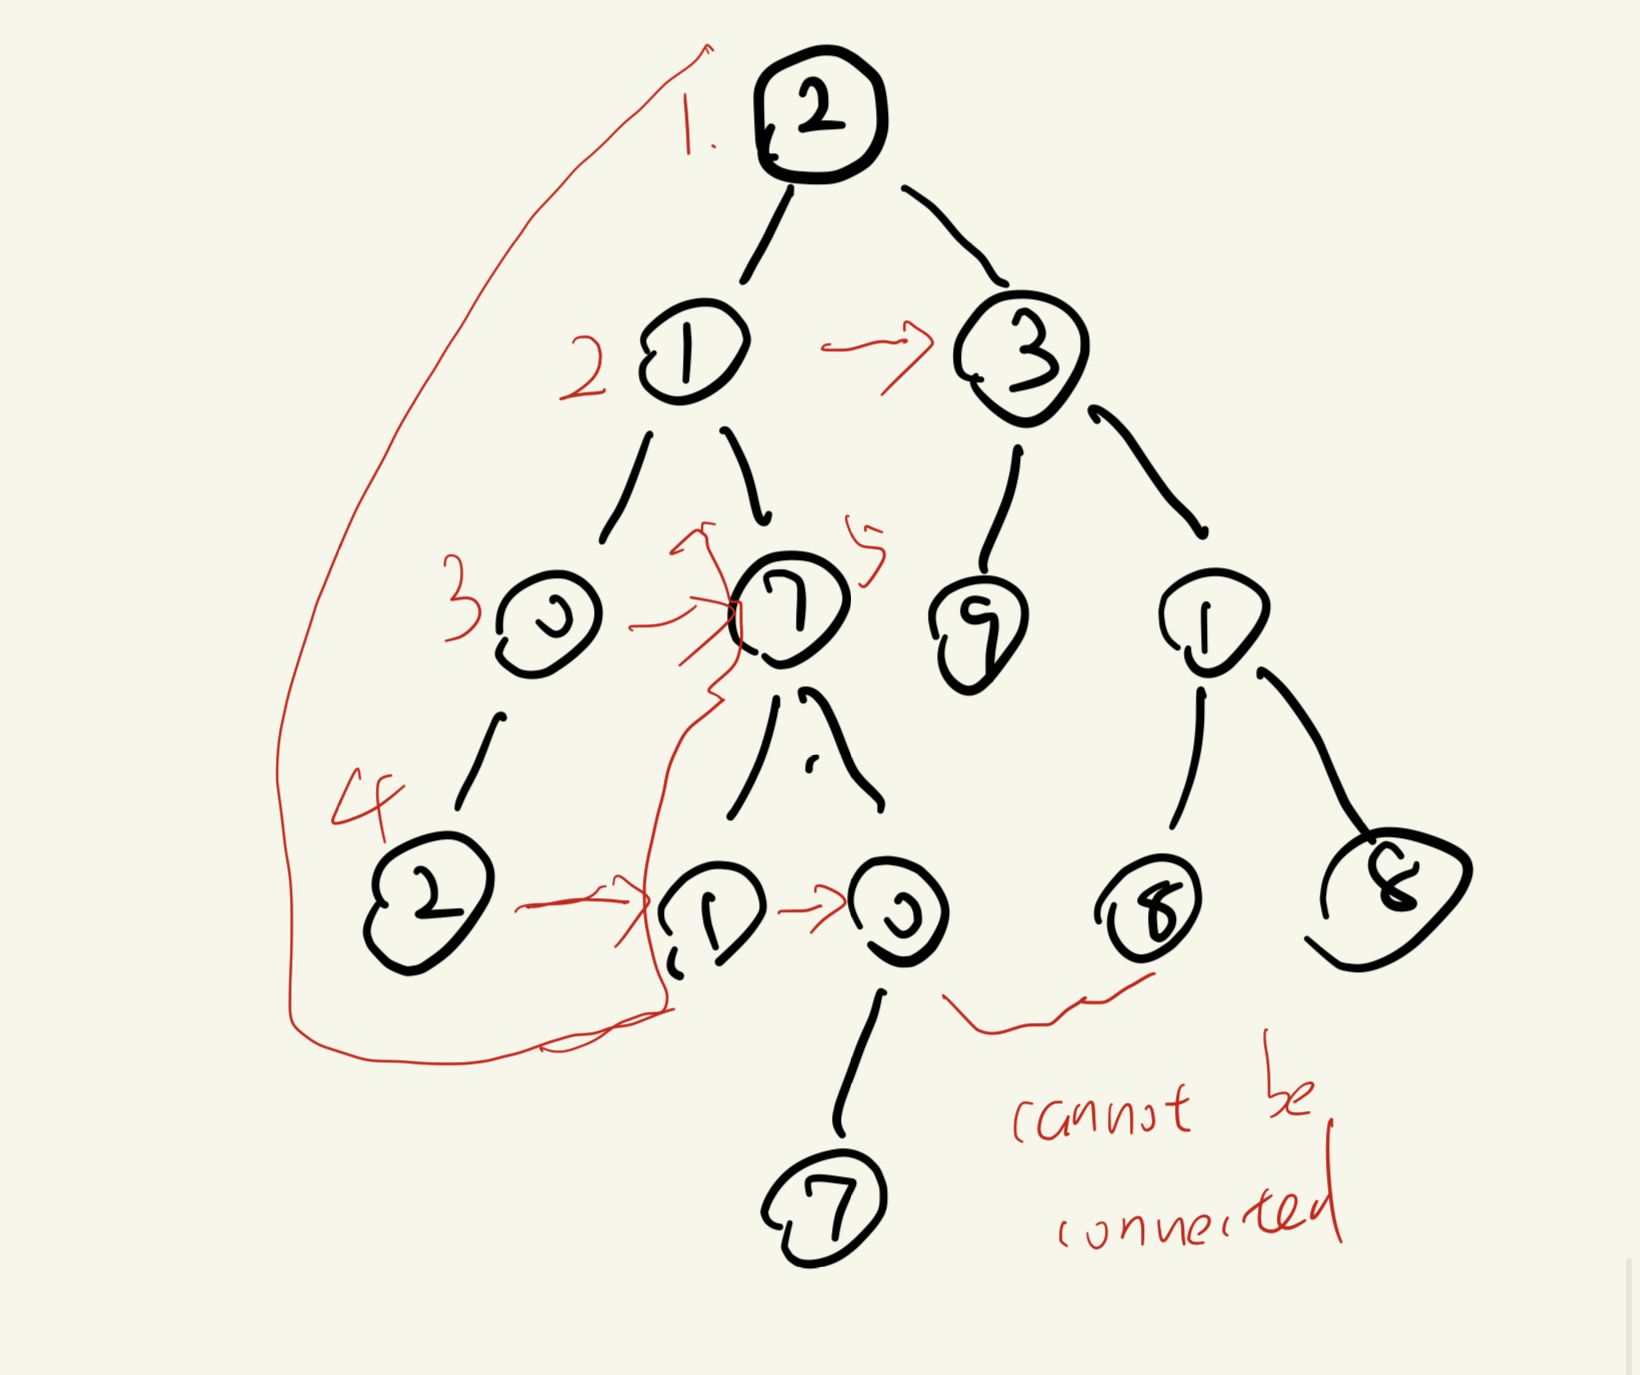 1. 2
2 1 3
3 0 7 5 9 1
4
2 1 0 8 8
cannot be
connected
7